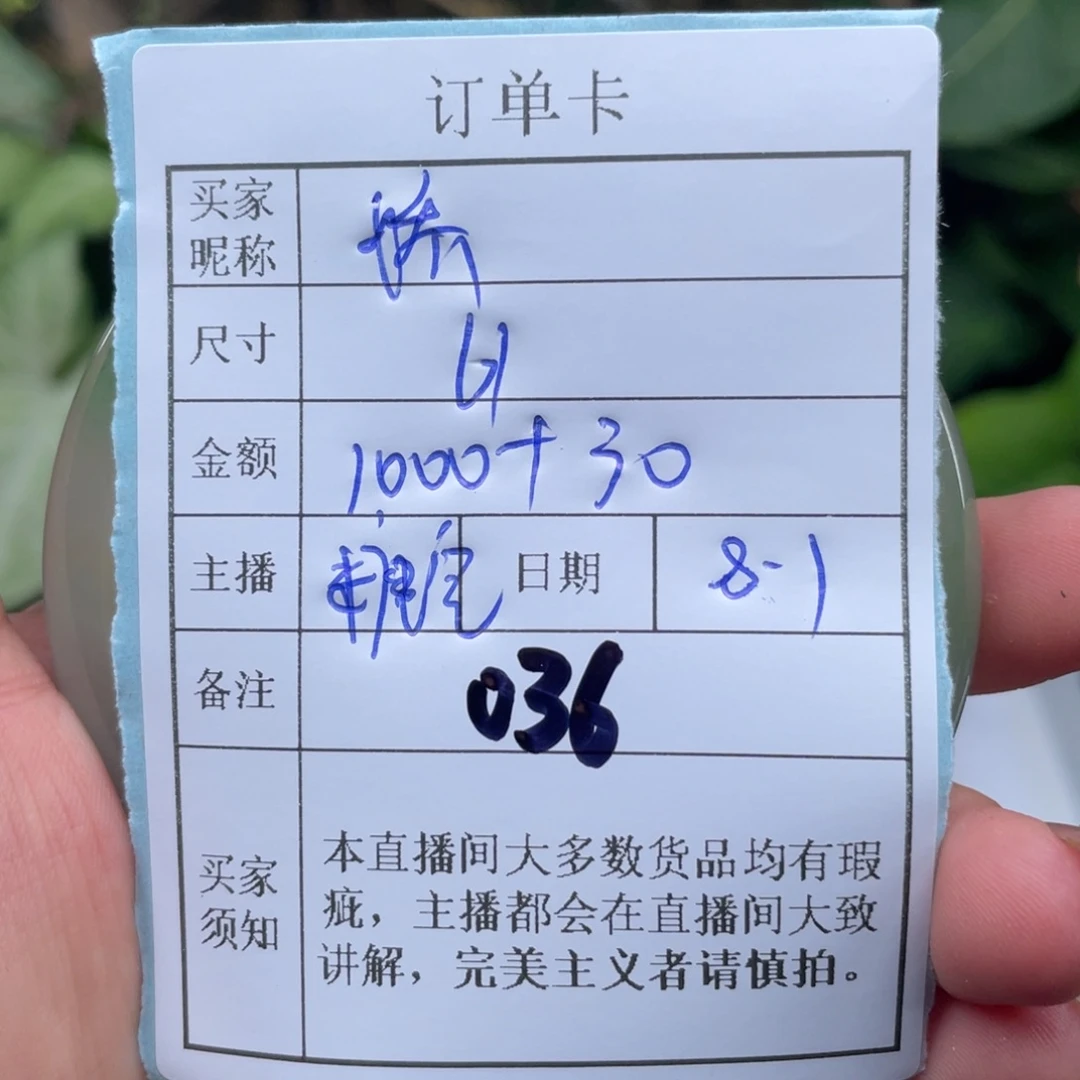 订单卡
买家
昵称 娇
尺寸 61
金额 1000+30
主播 日期 8-1
备注 036
买家
须知
本直播间大多数货品均有瑕
疵，主播都会在直播间大致
讲解，完美主义者请慎拍。